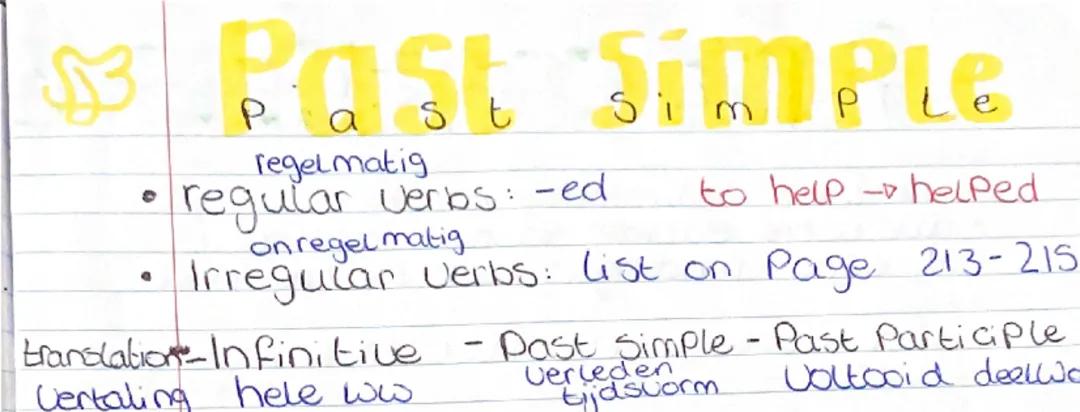 Past Simple
Past Simple
regelmatig
• regular verbs: -ed to help → helped
onregelmatig
• Irregular verbs: list on Page 213-215
translation - Infinitive - Past Simple - Past Participle
Vertaling hele ww verleden tijdsvorm Voltooid